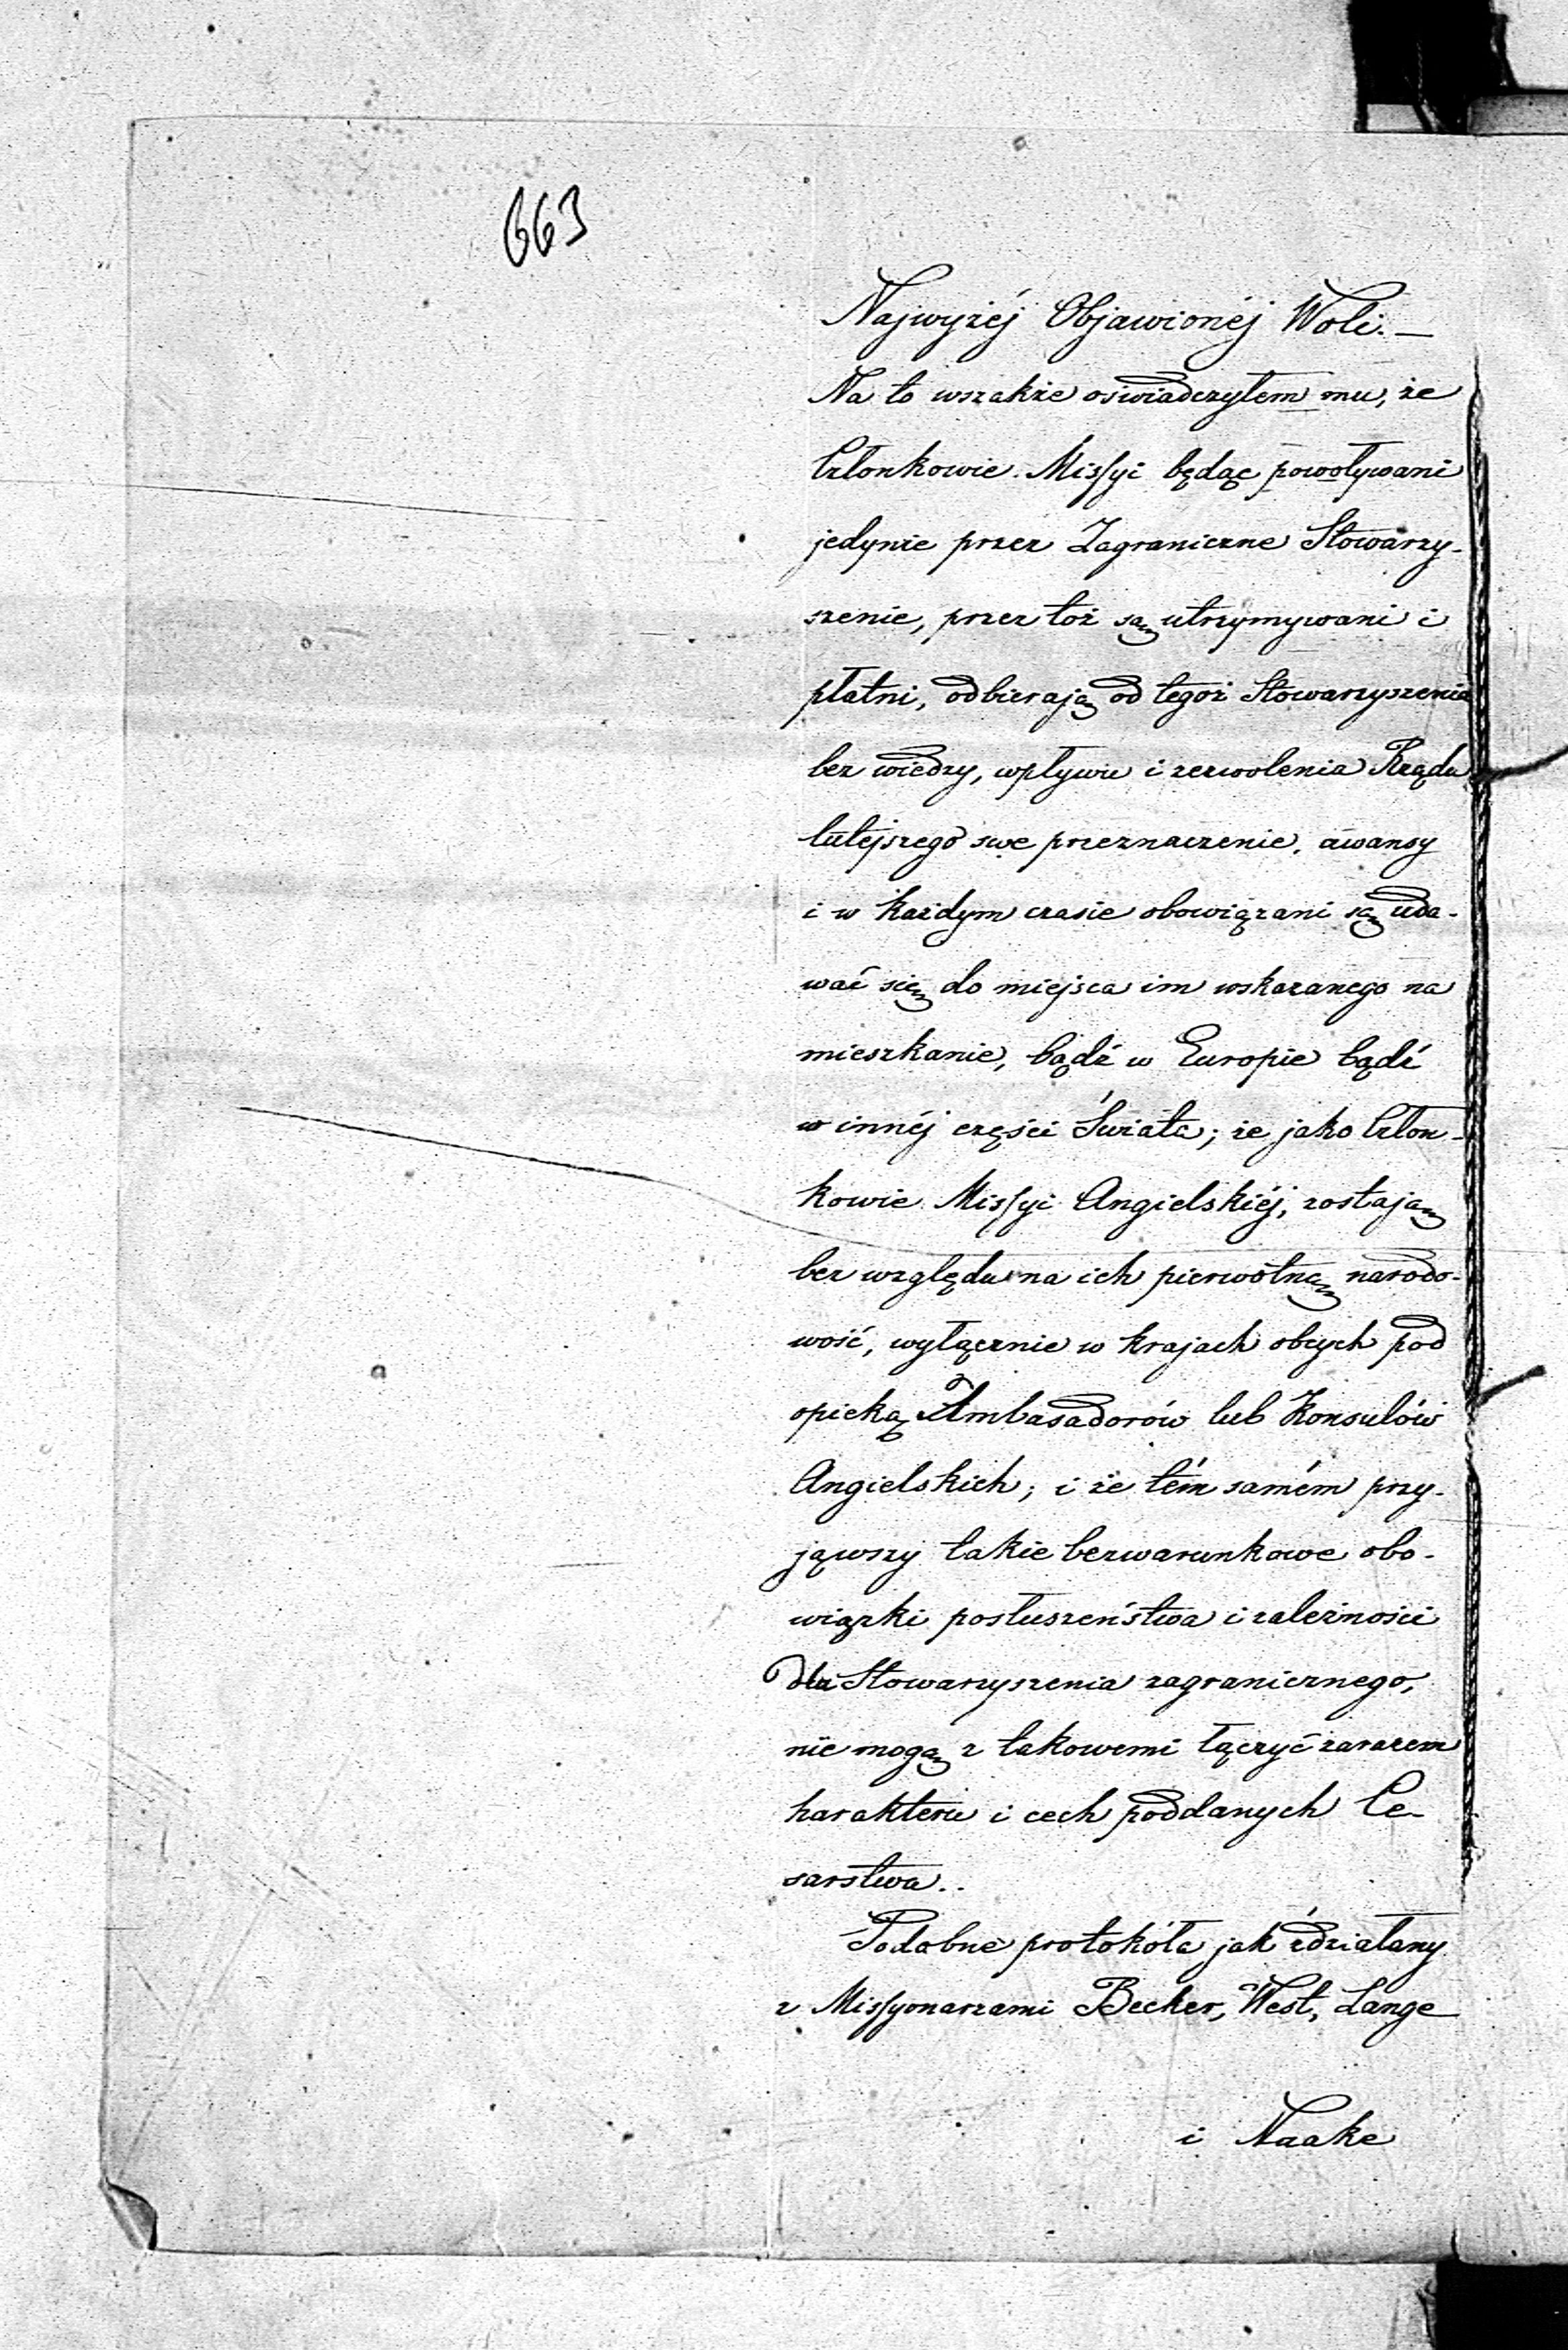 663
Najwyżéj Objawionéj Woli. —
Na to wszakże oświadczyłem mu, że
Członkowie Missyi będąc powoływani
jedynie przez Zagraniczne Stowarzy-
szenie, przez toż są utrzymywani i
płatni, odbierają od tegoż Stowarzyszenia
bez wiedzy, wpływu i zezwolenia Rządu
tutejszego swe przeznaczenie, awansy
i w każdym czasie obowiązani są uda-
wać się do miejsca im wskazanego na
mieszkanie, bądź w Europie bądź
w innéj części Świata; że jako Człon-
kowie Missyi Angielskiéj, zostają
bez względu na ich pierwotną narodo-
wość, wyłącznie w krajach obcych pod
opieką Ambasadorów lub Konsulów
Angielskich; i że tém samém przy-
jąwszy takie bezwarunkowe obo-
wiązki posłuszeństwa i zależności
dla Stowarzyszenia zagranicznego,
nie mogą z takowemi łączyć zarazem
harakteru i cech poddanych Ce-
sarstwa..
Podobne protokóła jak zdziałany
z Missyonarzami Becker, West, Lange
i Naake